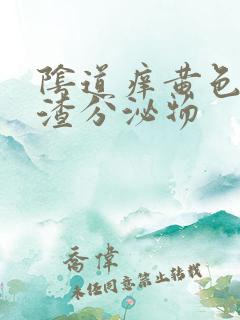 陰道痒黄色
渣分泌物
喬偉
未经同意禁止转载